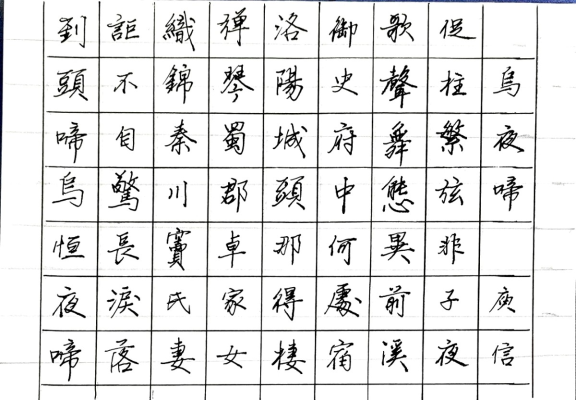 烏夜啼 庾信
促柱繁弦非子夜
歌聲舞態異前溪
御史府中何處宿
洛陽城頭那得棲
彈琴蜀郡卓家女
織錦秦川竇氏妻
詎不自驚長淚落
到頭啼烏恒夜啼